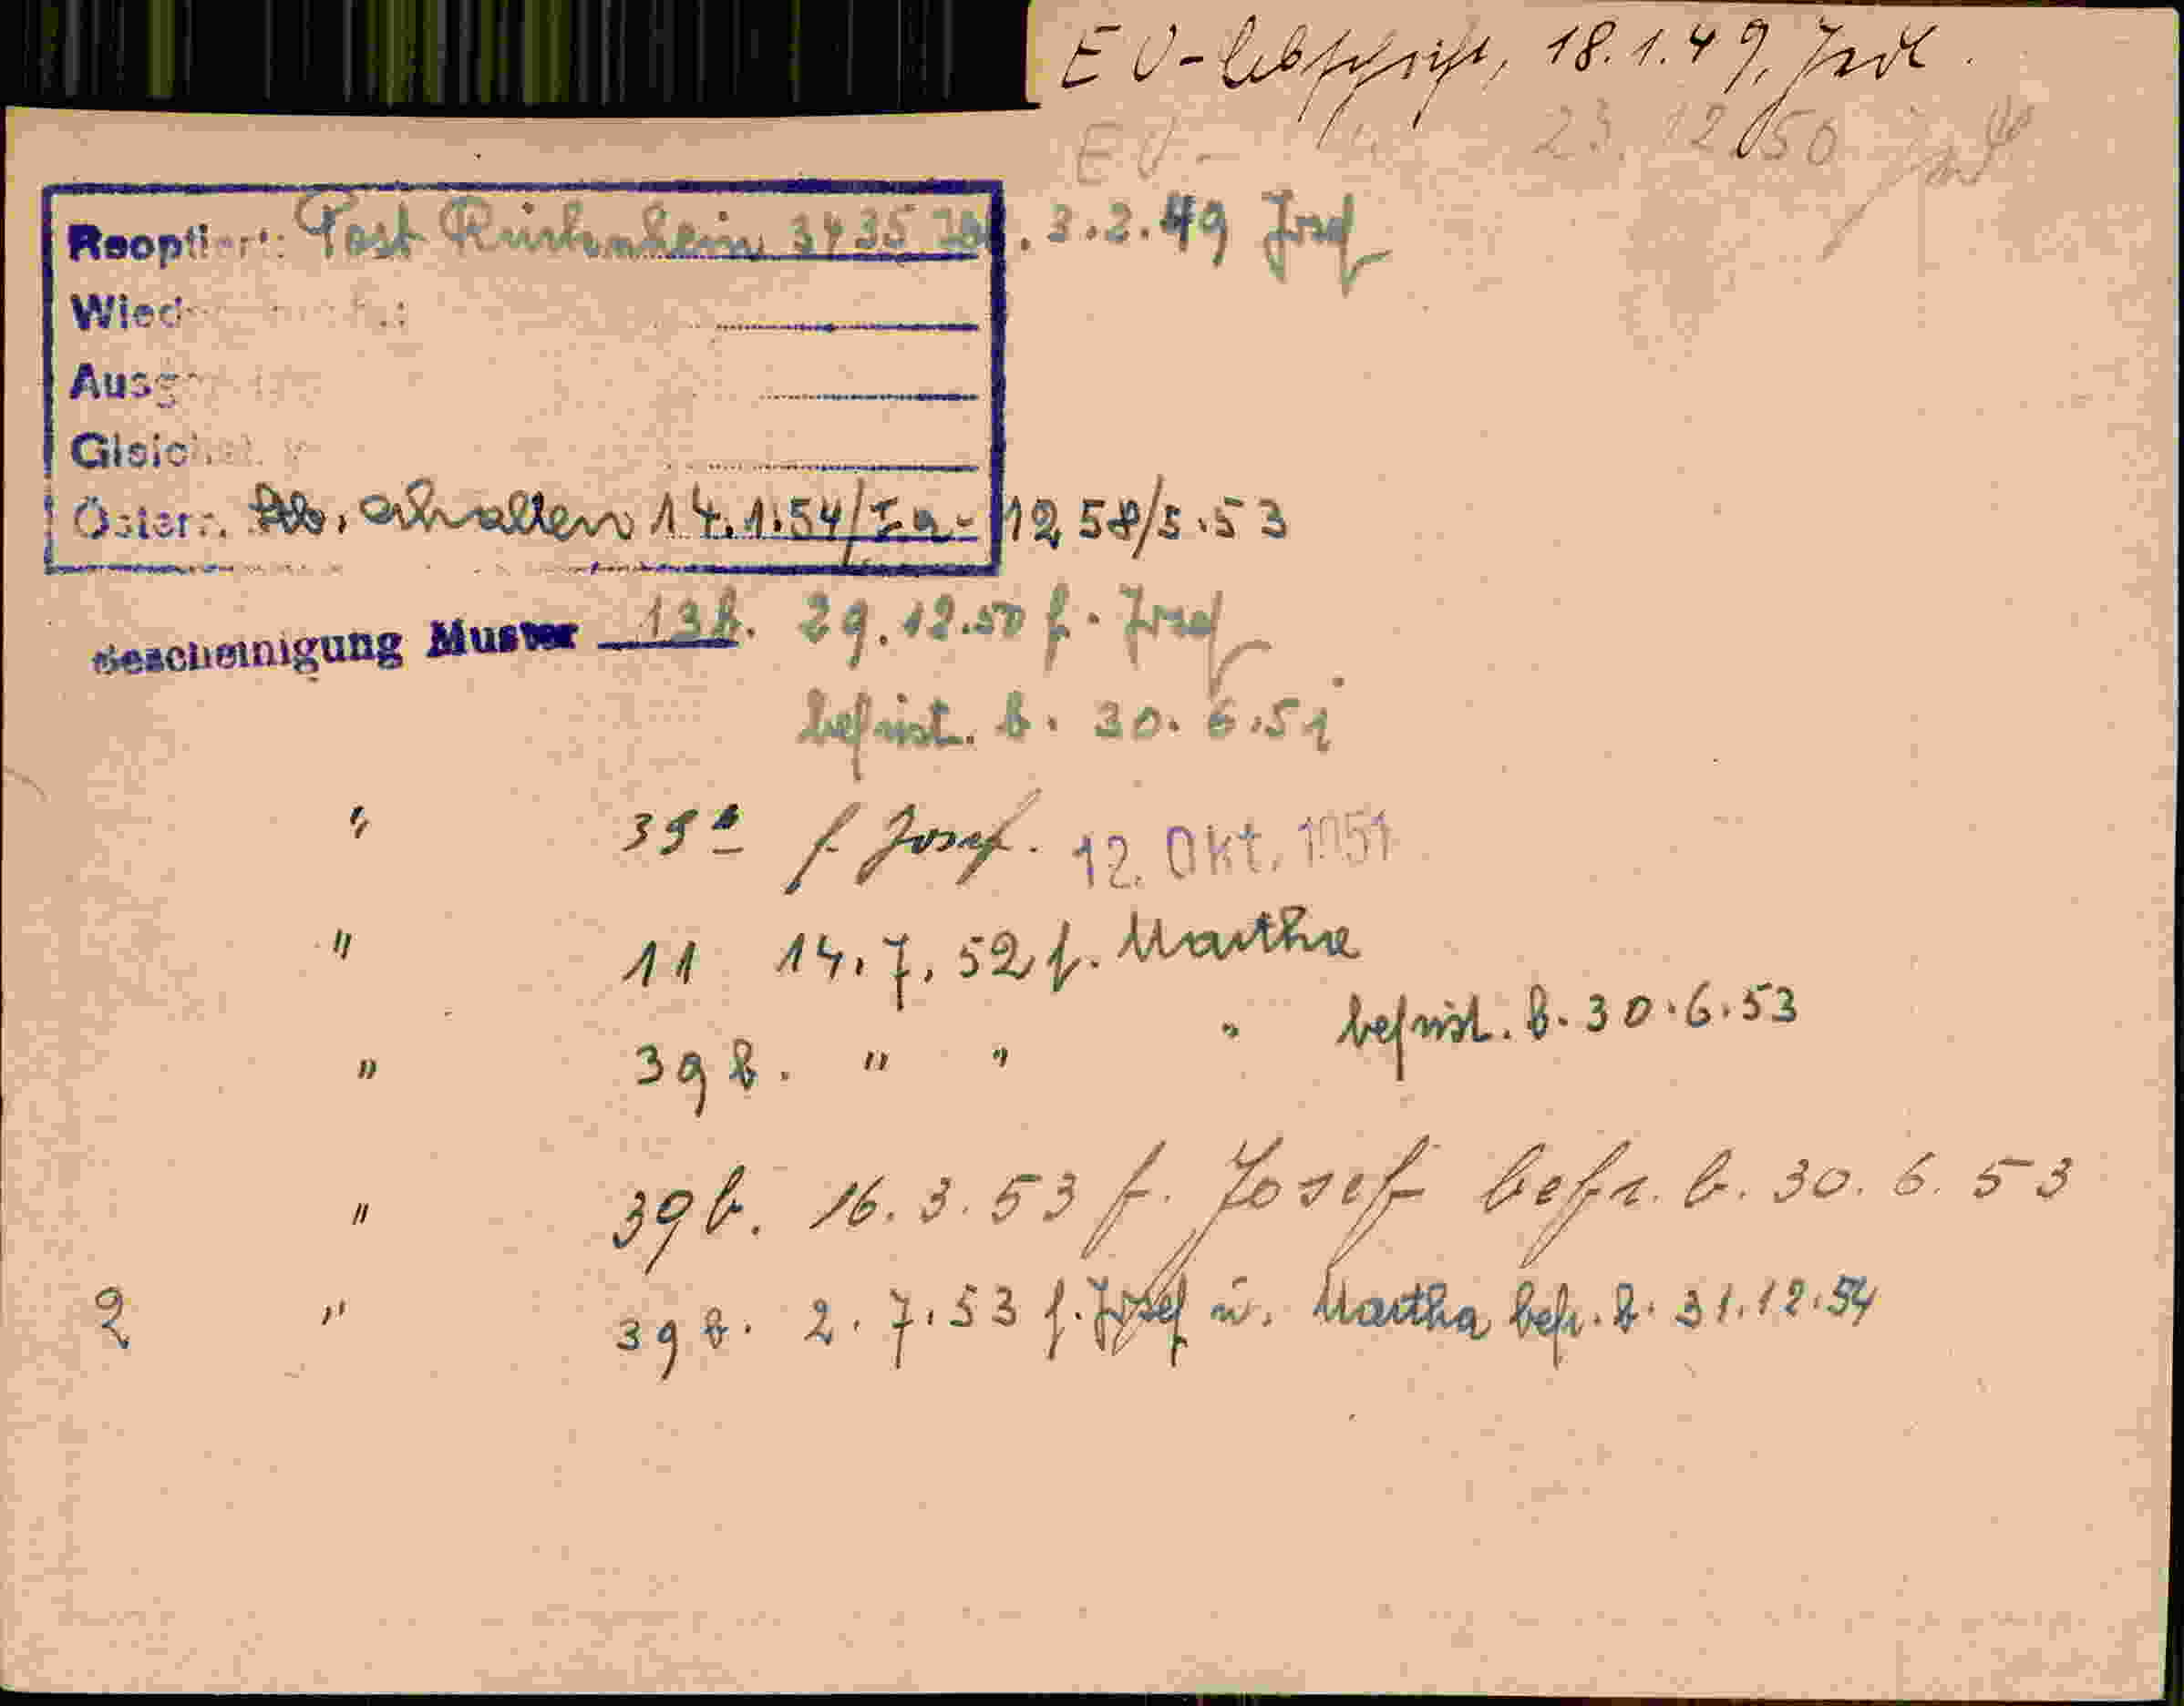 EU-Abschrift, 18.1.49,
EU- " 23.12.50
Reoptiert: Post 3435 3.2.49 Josef
Wied
Ausg
Gleich
Österr. erhalten 14.1.54/Ia- 1258/5.53
Bescheinigung Muster 13b. 29.12.50 f. Josef
befrist. b. 30.6.51
" 39a f Josef. 12. Okt. 1951
" 11 14.7.52 f. Martha
" 39b. " " " befrist. b. 30.6.53
" 39b. 16.3.53 f. Josef befr. b. 30.6.53
2 " 39b. 2.7.53 f. Josef u. Martha befr. b. 31.12.54